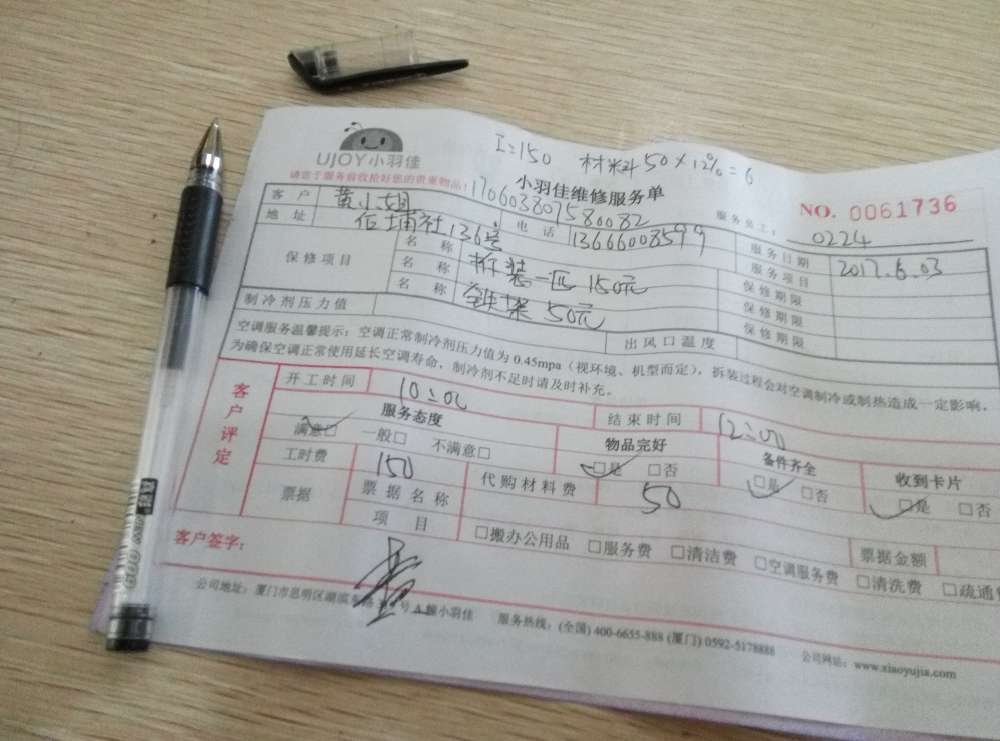 I=150 材料 50×12%=6
UJOY小羽佳
小羽佳维修服务单
NO. 0061736
请您于服务前收拾好您的贵重物品!
17060380758 0082
服务员工: 0224
客 户 黄小姐 电 话 13666008599 服务日期 2017.6.03
地 址 后埔社136号 服务项目
保修项目 名 称 拆装一匹 150元 保修期限
名 称 铁架 50元 保修期限
名 称 保修期限
制冷剂压力值 出风口温度
空调服务温馨提示:空调正常制冷剂压力值为 0.45mpa(视环境、机型而定),拆装过程会对空调制冷或制热造成一定影响,
为确保空调正常使用延长空调寿命,制冷剂不足时请及时补充。
客户评定
开工时间 10:00 结束时间 12:00
服务态度 物品完好 备件齐全 收到卡片
满意□ 一般□ 不满意□ □是 □否 □是 □否 □是 □否
工时费 150 代购材料费 50
票据 票据名称
项 目 □搬办公用品 □服务费 □清洁费 □空调服务费 □清洗费 □疏通
票据金额
客户签字:
公司地址:厦门市思明区湖滨 号 小羽佳 服务热线:(全国) 400-6655-888 (厦门) 0592-5178888 公司网站:www.xiaoyujia.com